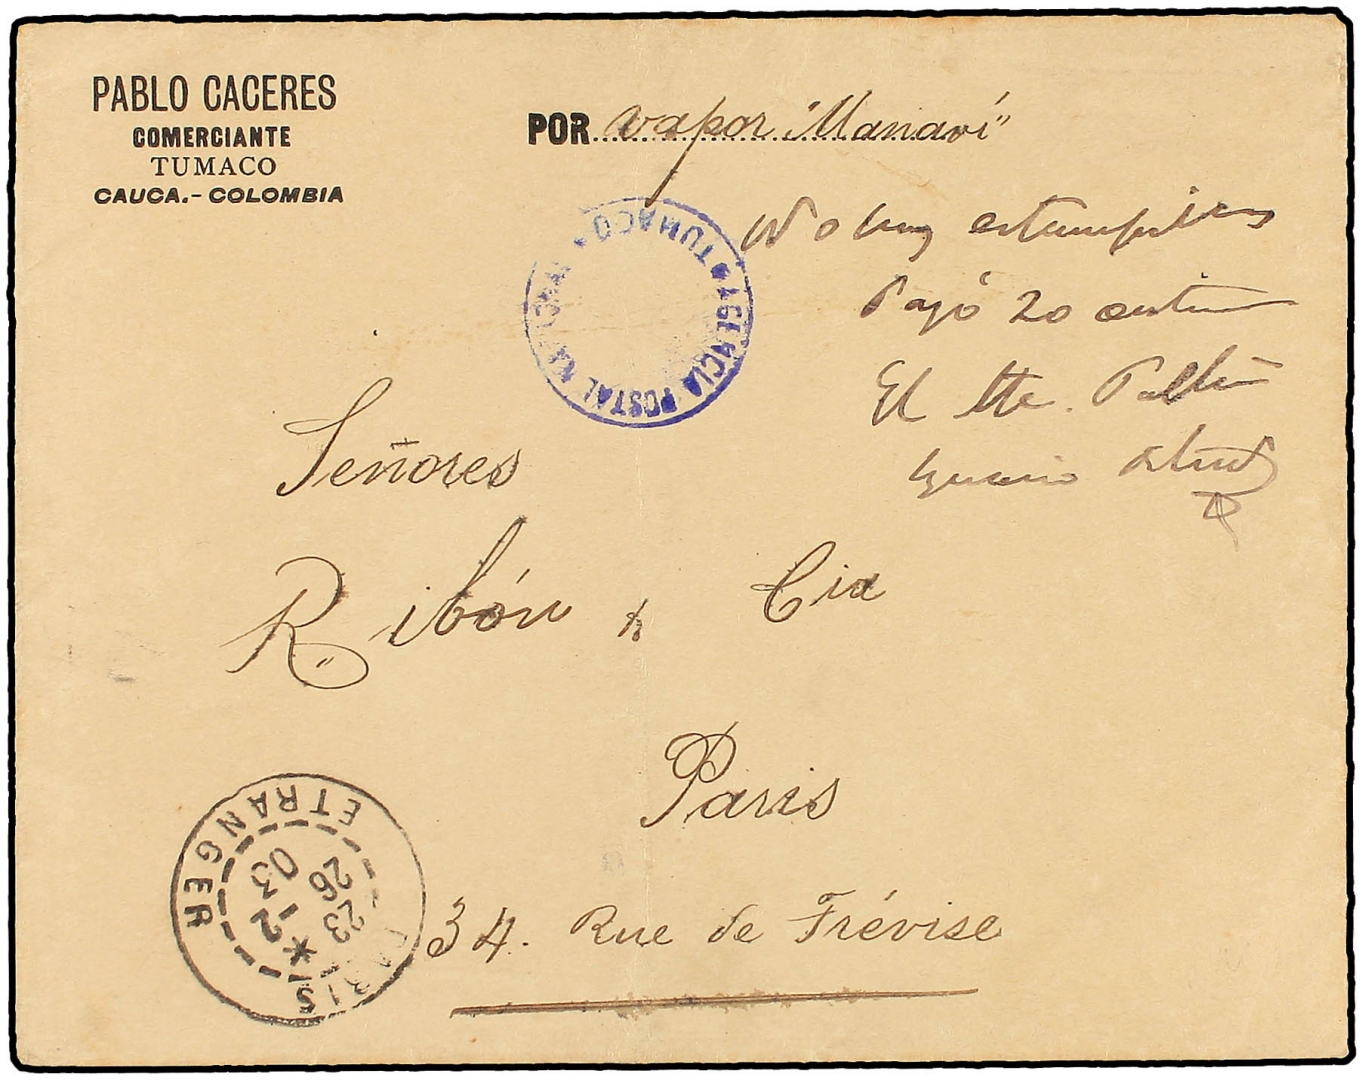 PABLO CACERES
COMERCIANTE
TUMACO
CAUCA.-COLOMBIA
POR vapor "Manaví"
No hay estampillas
Pagó 20 centavos
El Ate. Postal
AGENCIA POSTAL NACIONAL
TUMACO
Señores
Ribón & Cia
Paris
34. Rue de Trévise
PARIS ETRANGER
23 26
2 03